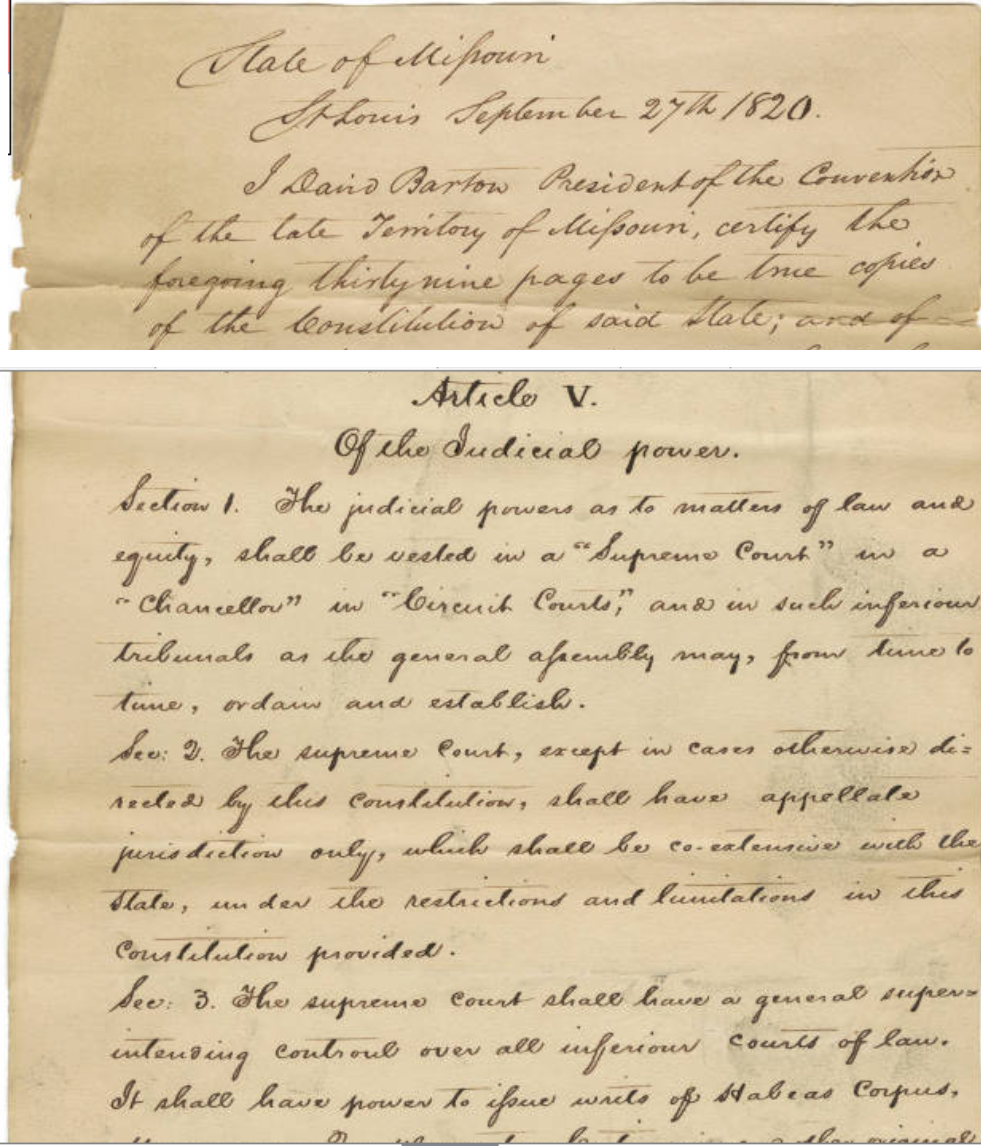 State of Missouri
St Louis September 27th 1820.
I David Barton President of the Convention
of the late Territory of Missouri, certify the
foregoing thirty nine pages to be true copies
of the Constitution of said State; and of
Article V.
Of the Judicial power.
Section 1. The judicial powers as to matters of law and
equity, shall be vested in a "Supreme Court" in a
"Chancellor" in "Circuit Courts," and in such inferiour
tribunals as the general assembly may, from time to
time, ordain and establish.
Sec: 2. The supreme Court, except in cases otherwise di=
rected by this constitution, shall have appellate
jurisdiction only, which shall be co-extensive with the
State, under the restrictions and limitations in this
Constitution provided.
Sec: 3. The supreme court shall have a general super=
intending controul over all inferiour courts of law.
It shall have power to issue writs of Habeas Corpus,
other original